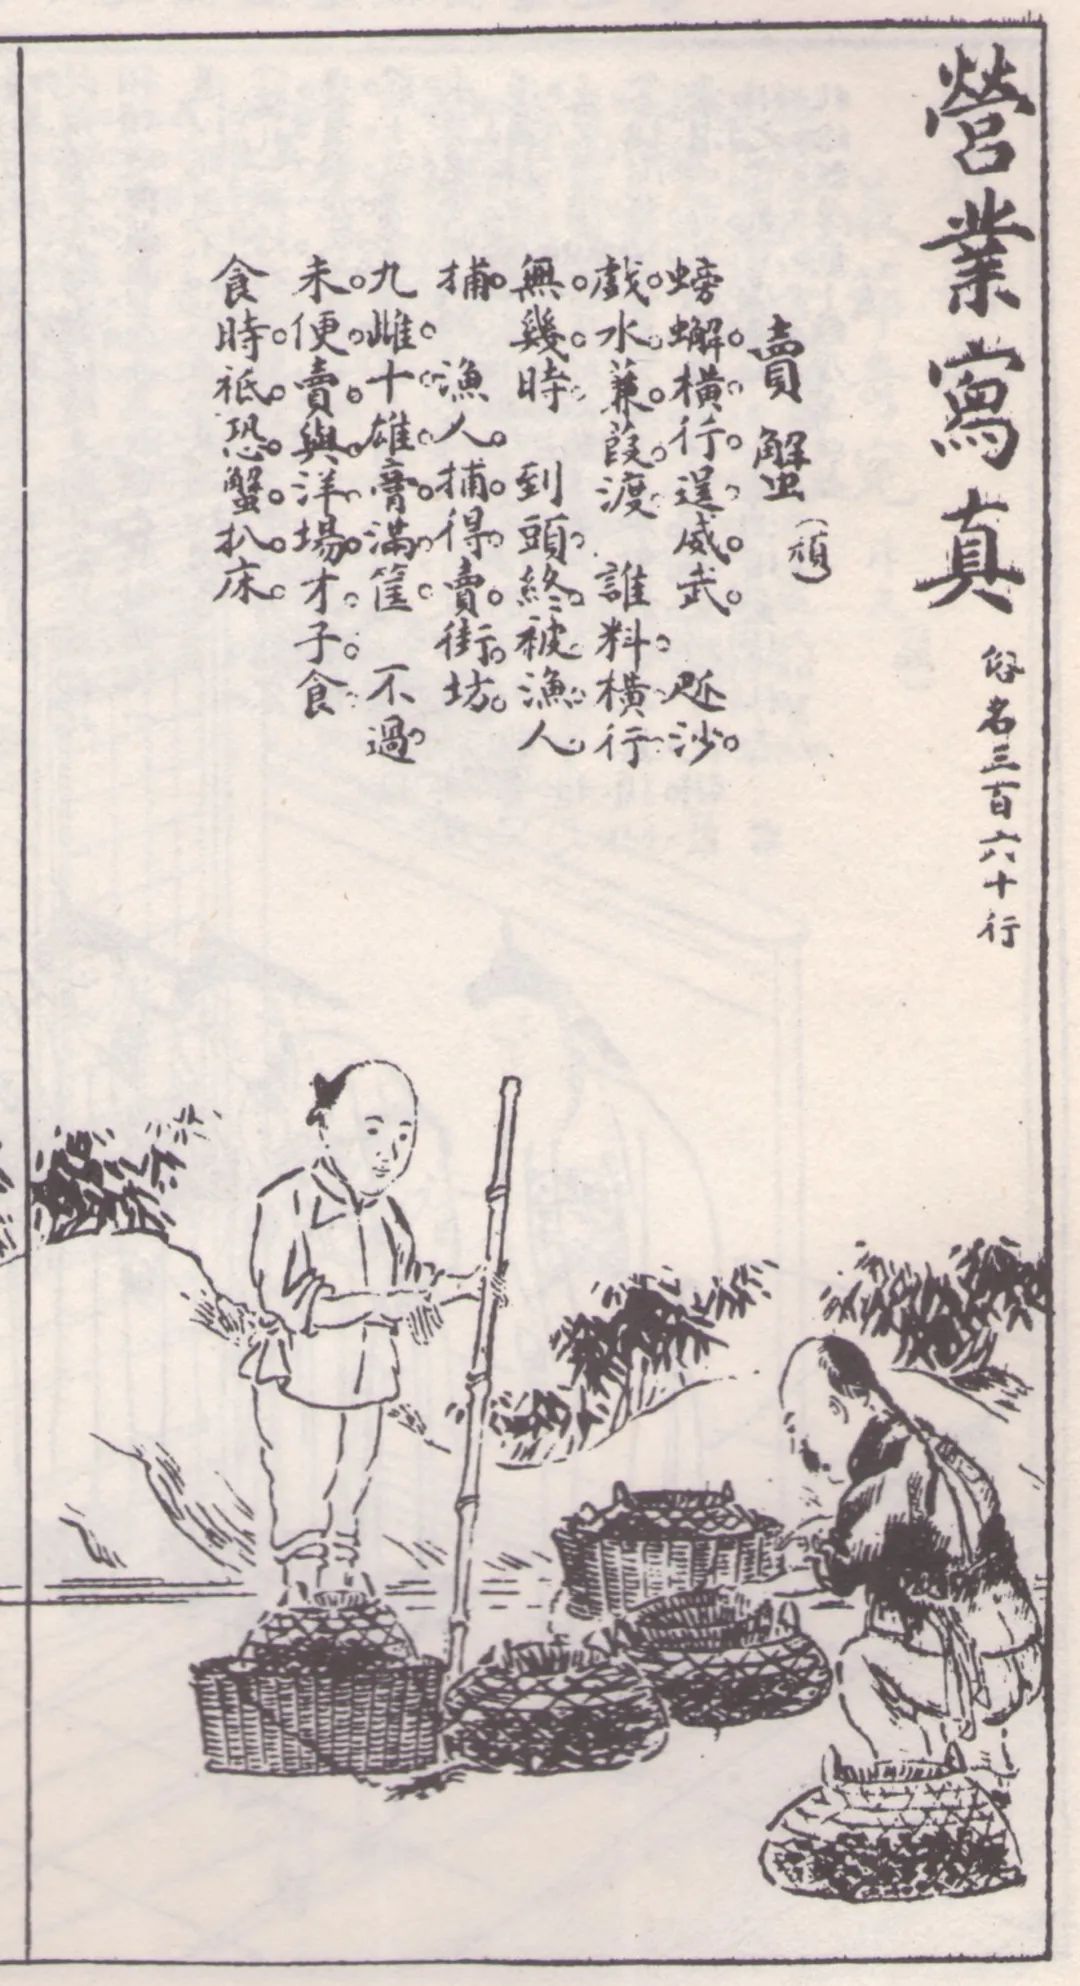 營業寫真
俗名三百六十行
賣蟹(頑)
螃蠏橫行逞威武 跁沙
戲水蒹葭渡 誰料橫行
無幾時 到頭終被漁人
捕 漁人捕得賣街坊
九雌十雄膏滿筐 不過
未便賣與洋場才子食
食時祗恐蟹扒床